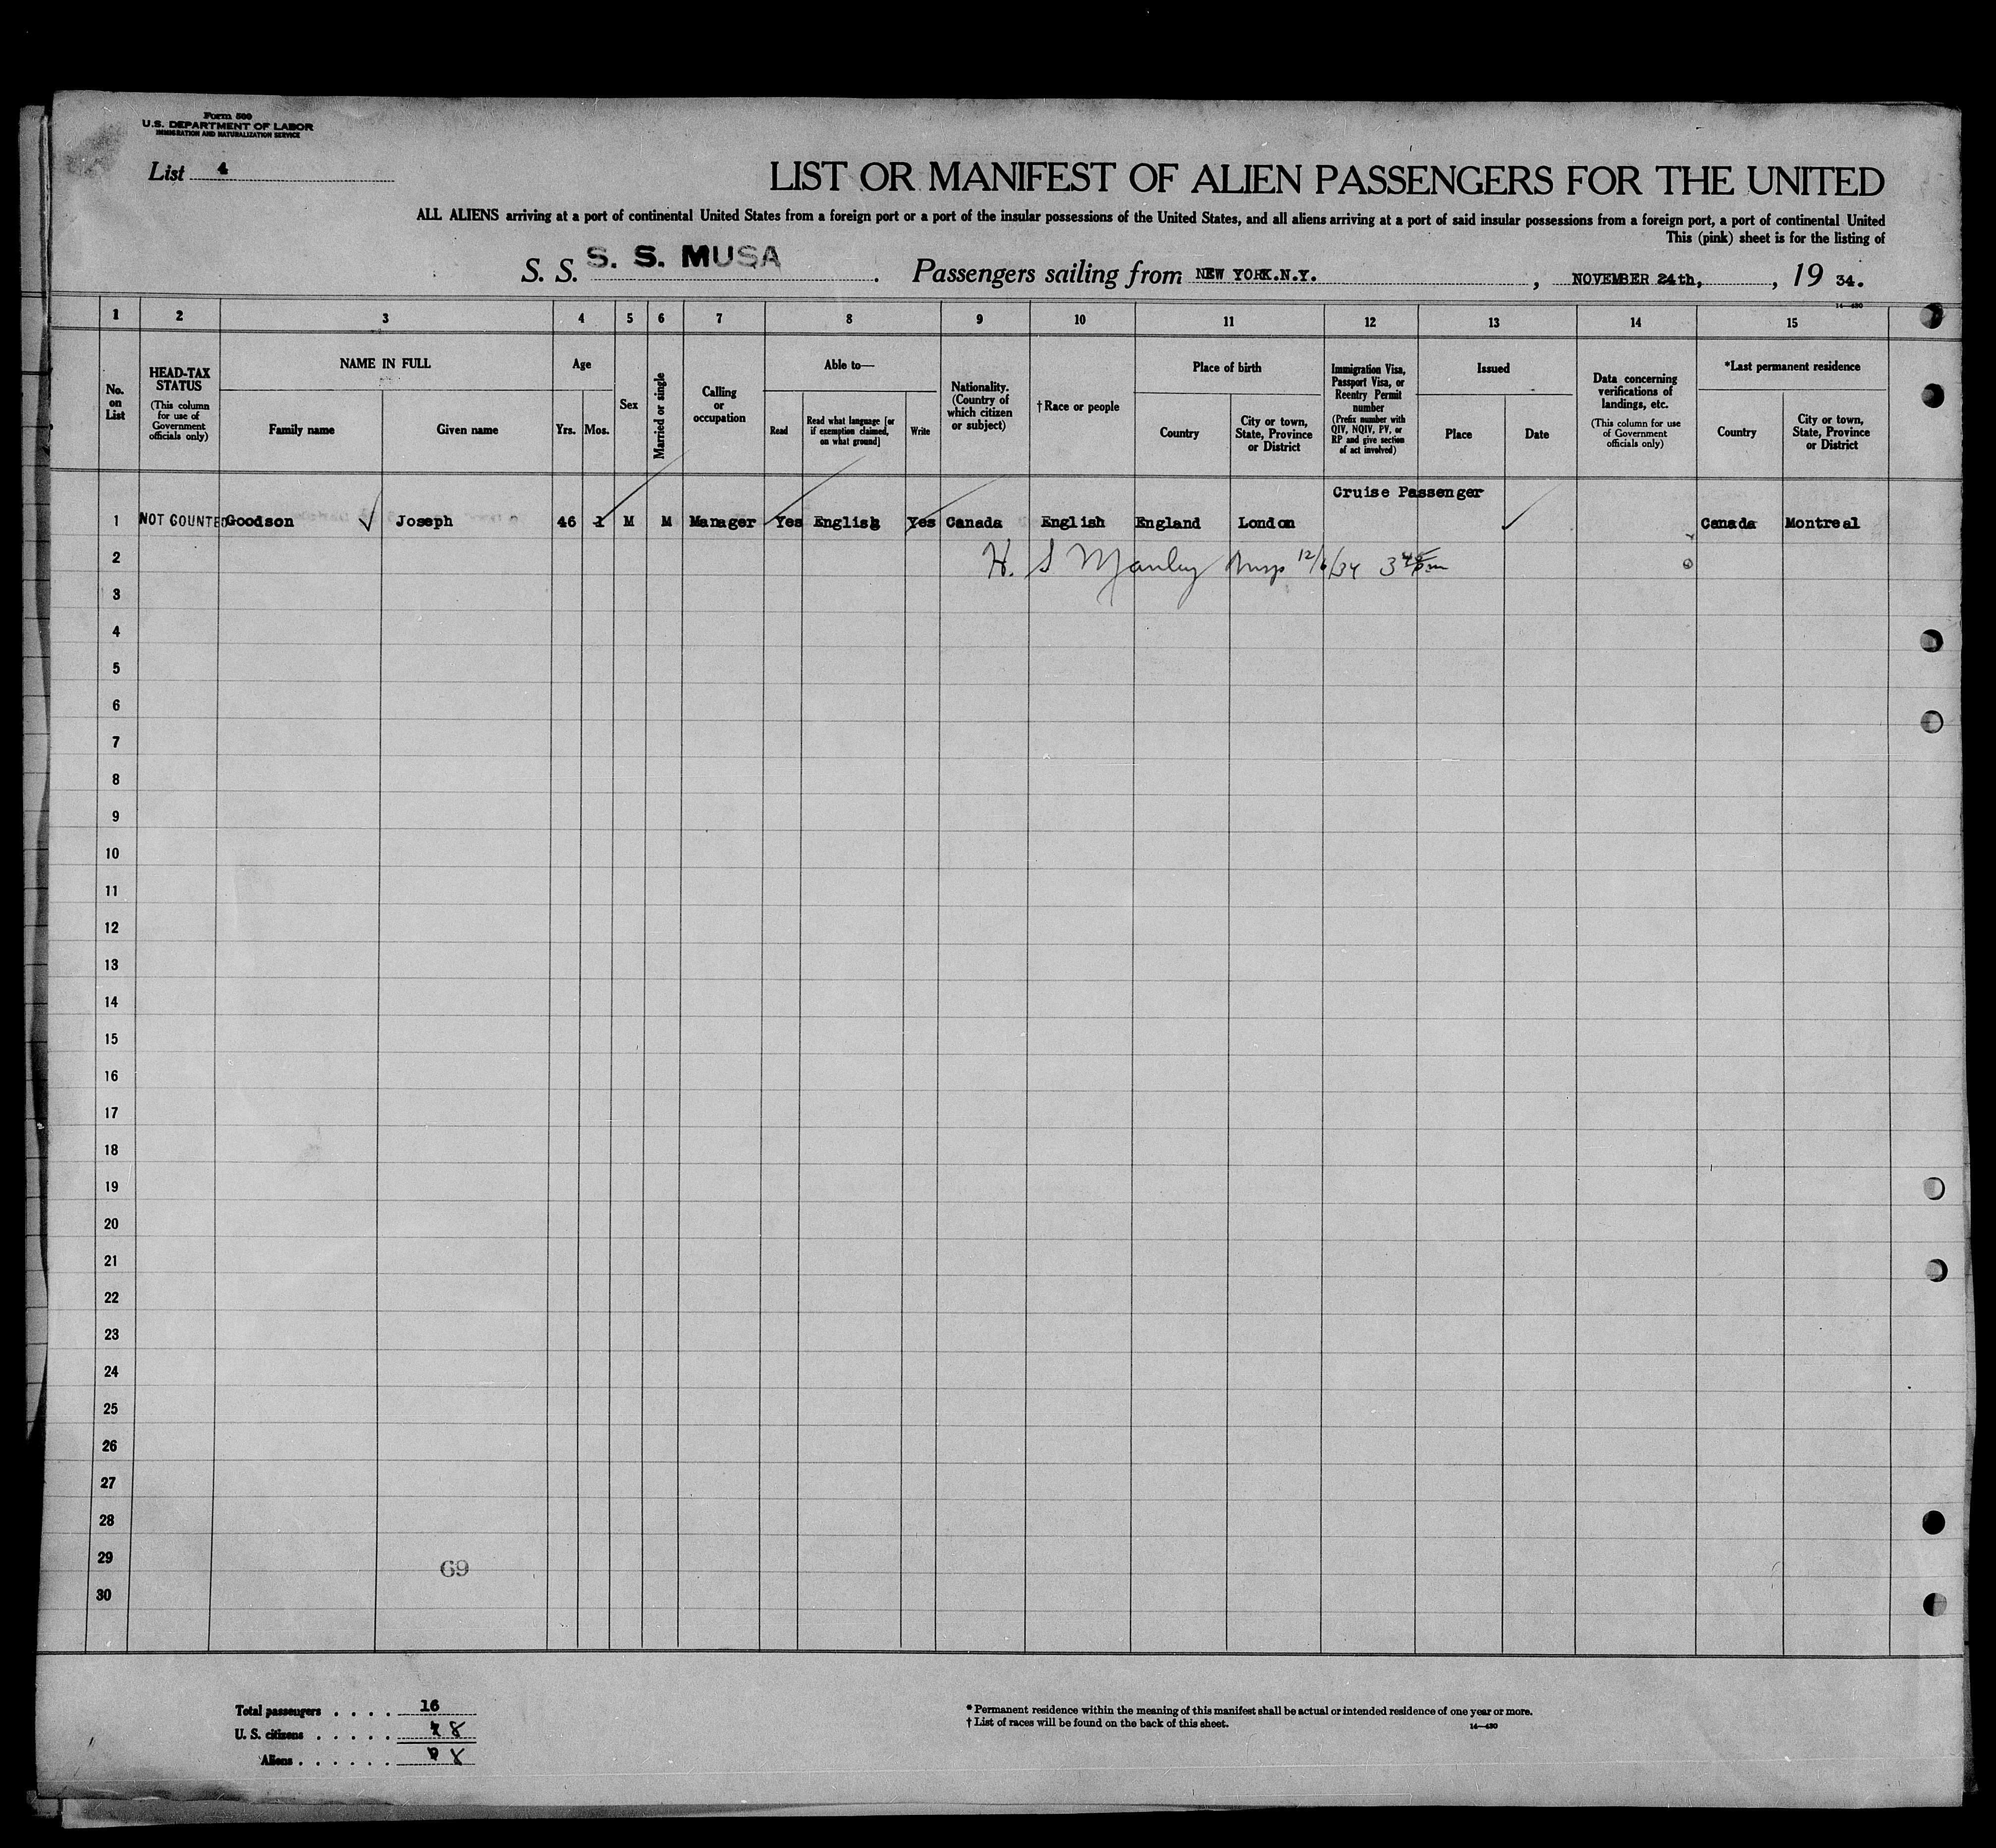 Form 500
U.S. DEPARTMENT OF LABOR
IMMIGRATION AND NATURALIZATION SERVICE
List 4
LIST OR MANIFEST OF ALIEN PASSENGERS FOR THE UNITED
ALL ALIENS arriving at a port of continental United States from a foreign port or a port of the insular possessions of the United States, and all aliens arriving at a port of said insular possessions from a foreign port, a port of continental United
This (pink) sheet is for the listing of
S. S. S. S. MUSA. Passengers sailing from NEW YORK.N.Y. , NOVEMBER 24th, , 19 34.
14—430
1 2 3 4 5 6 7 8 9 10 11 12 13 14 15
No. on List
HEAD-TAX STATUS
(This column for use of Government officials only)
NAME IN FULL
Family name
Given name
Age
Yrs.
Mos.
Sex
Married or single
Calling or occupation
Able to—
Read
Read what language [or if exemption claimed, on what ground]
Write
Nationality. (Country of which citizen or subject)
† Race or people
Place of birth
Country
City or town, State, Province or District
Immigration Visa, Passport Visa, or Reentry Permit number
(Prefix number with QIV, NQIV, PV, or RP and give section of act involved)
Issued
Place
Date
Data concerning verifications of landings, etc.
(This column for use of Government officials only)
*Last permanent residence
Country
City or town, State, Province or District
Cruise Passenger
1 NOT COUNTED Goodson Joseph 46 1 M M Manager Yes English Yes Canada English England London Canada Montreal
2 H. S Manley Insp 12/6/34 3 45 pm
3
4
5
6
7
8
9
10
11
12
13
14
15
16
17
18
19
20
21
22
23
24
25
26
27
28
29
69
30
Total passengers . . . . 16
U. S. citizens . . . . . 8
Aliens . . . . . . 8
* Permanent residence within the meaning of this manifest shall be actual or intended residence of one year or more.
† List of races will be found on the back of this sheet.
14—430